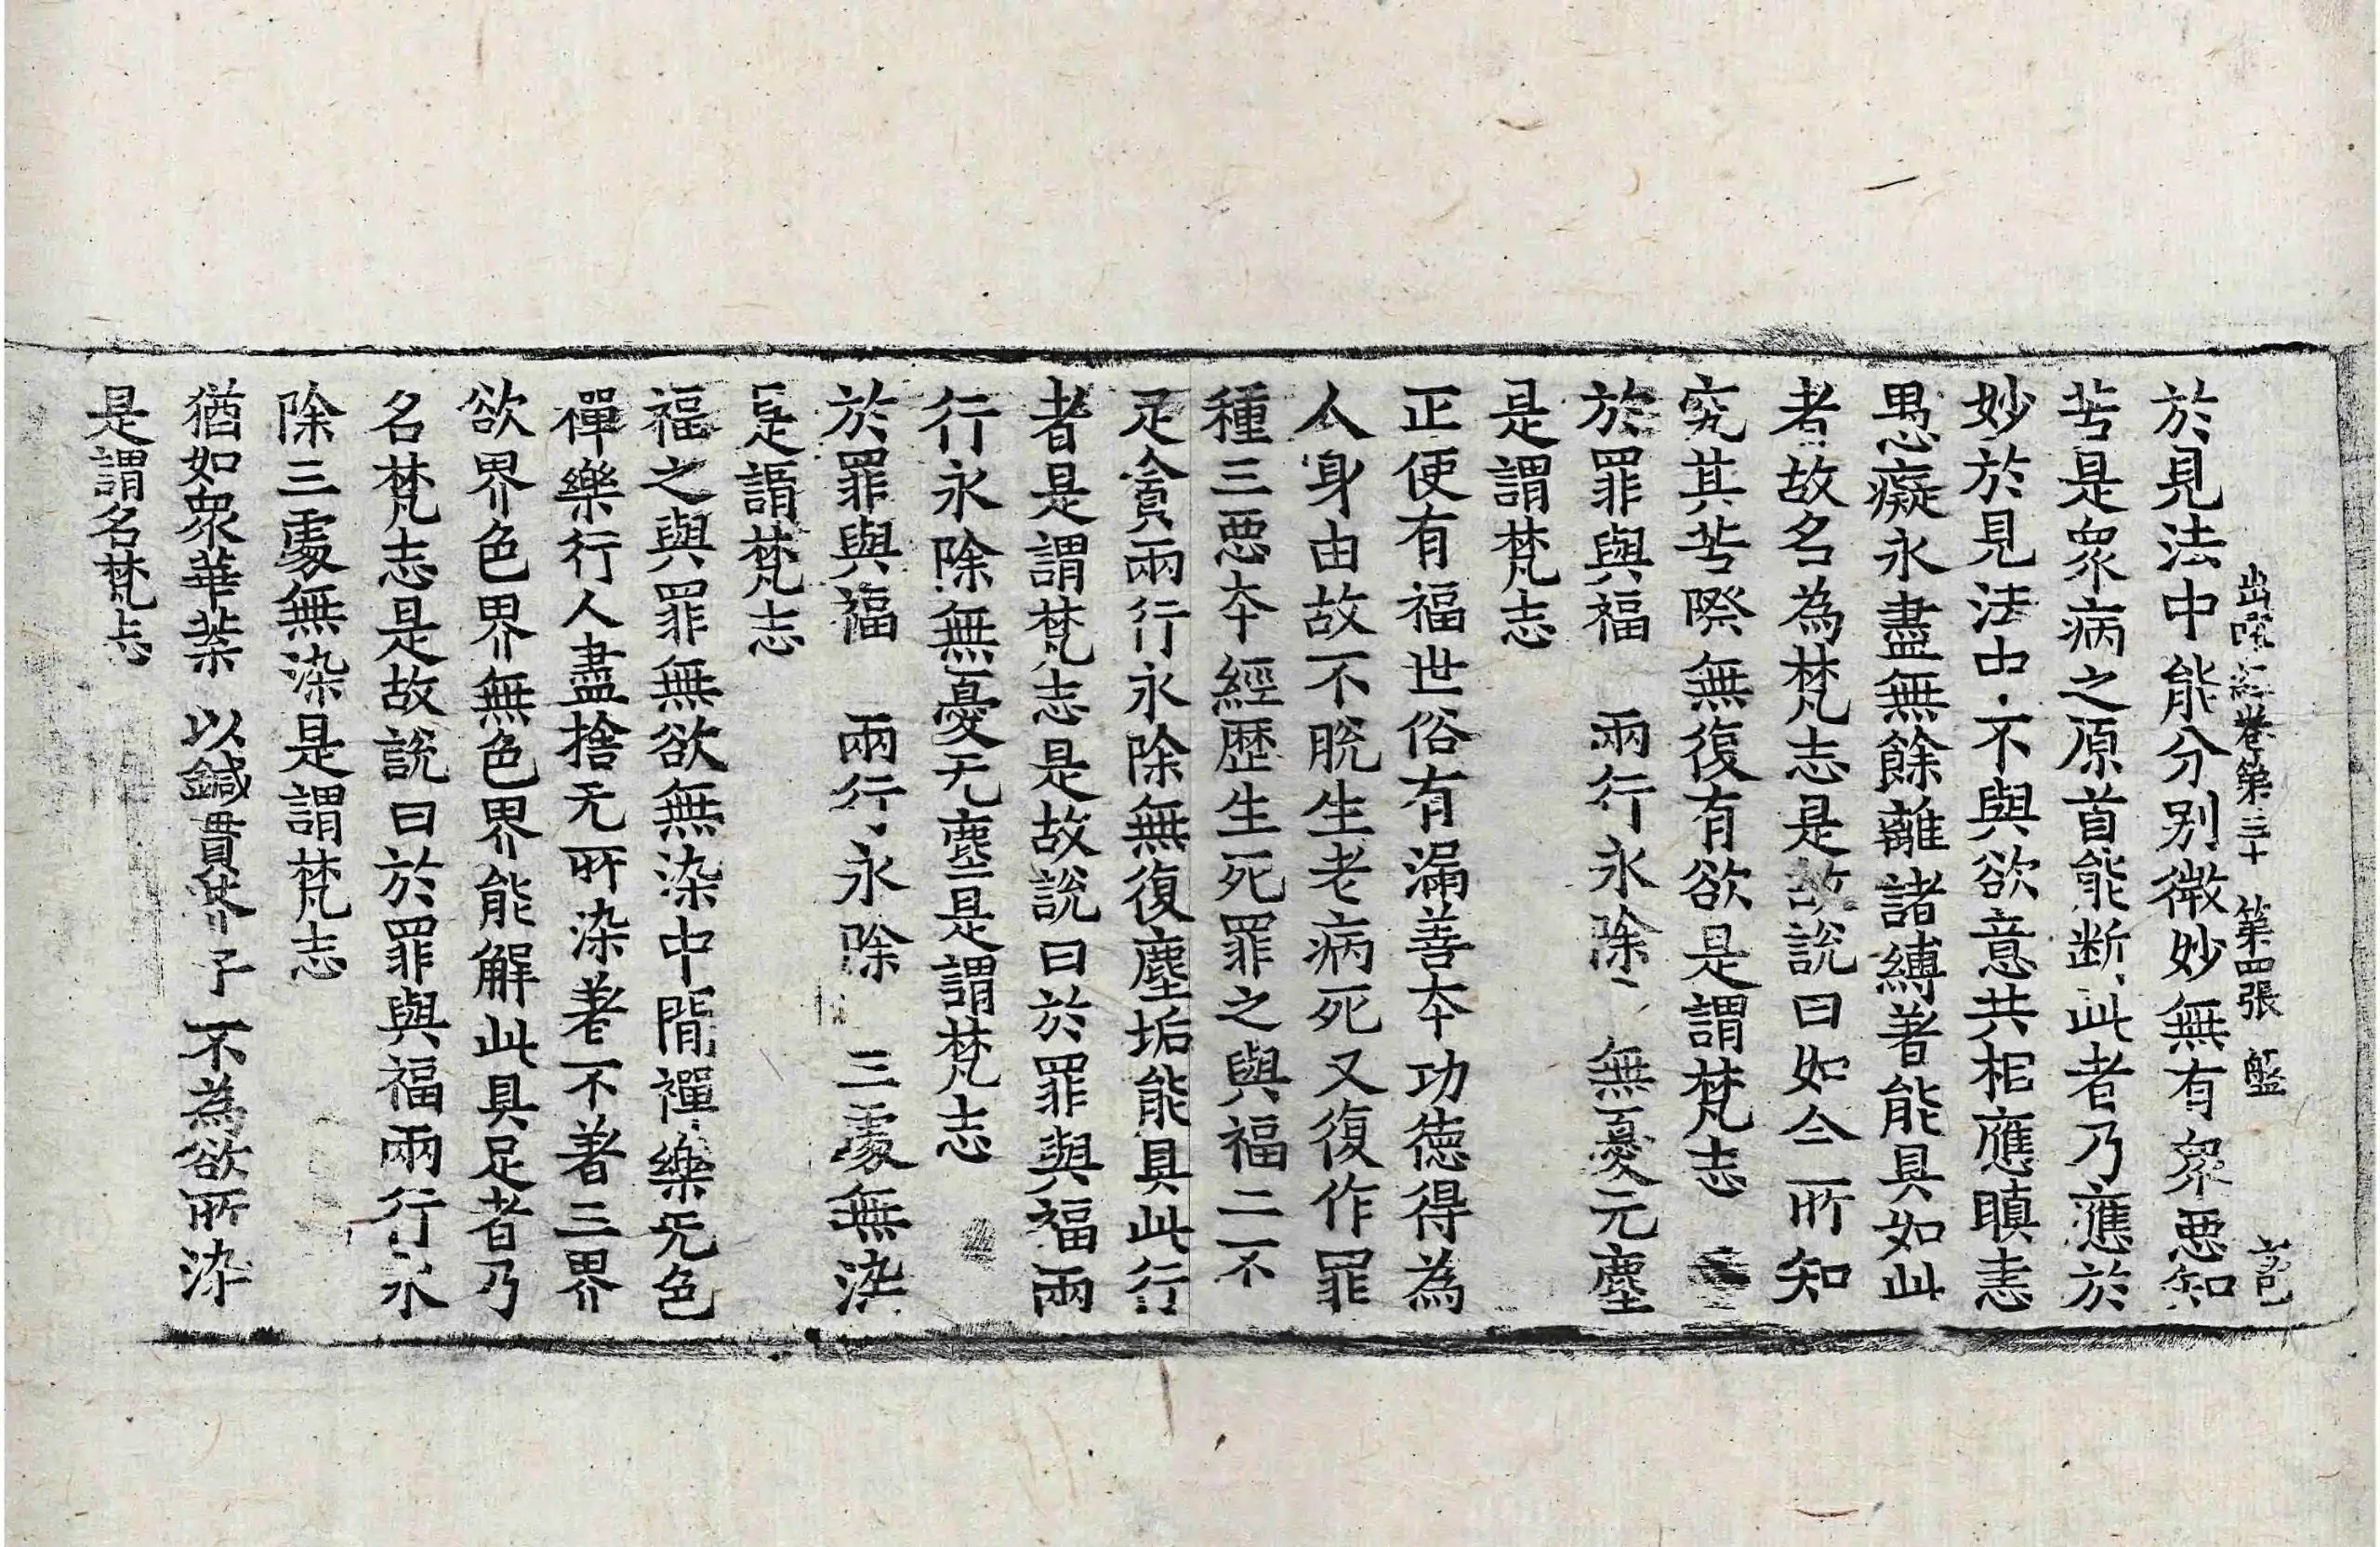 出曜經卷第三十　第四張　盤
於見法中能分別微妙無有衆惡知
苦是衆病之原首能断此者乃應於
妙於見法中不與欲意共相應瞋恚
愚癡永盡無餘離諸縛著能具如此
者故名為梵志是故說曰如今所知
究其苦際無復有欲是謂梵志
於罪與福　兩行永除　無憂元塵
是謂梵志
正使有福世俗有漏善本功德得為
人身由故不脫生老病死又復作罪
種三惡本經歷生死罪之與福二不
足貪兩行永除無復塵垢能具此行
者是謂梵志是故說曰於罪與福兩
行永除無憂无塵是謂梵志
於罪與福　兩行永除　三處無染
是謂梵志
福之與罪無欲無染中間禪樂无色
禪樂行人盡捨无所染著不著三界
欲界色界無色界能解此具足者乃
名梵志是故說曰於罪與福兩行永
除三處無染是謂梵志
猶如衆華葉　以鍼貫芥子　不為欲所染
是謂名梵志